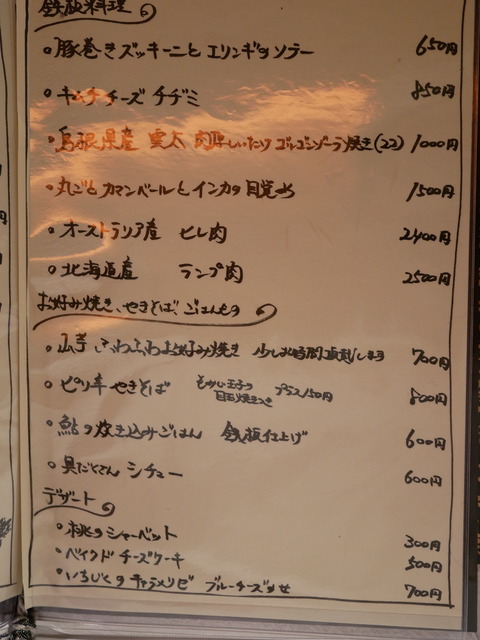 鉄板料理
・豚巻きズッキーニとエリンギのソテー 650円
・キムチチーズ チヂミ 850円
・島根県産 雲太 肉厚しいたけ ゴルゴンゾーラ焼き(2コ) 1000円
・丸ごとカマンベールとインカの目覚め 1500円
・オーストラリア産 ヒレ肉 2400円
・北海道産 ランプ肉 2500円
お好み焼き、やきそば、ごはんもの
・山芋 ふわふわお好み焼き 少しお時間頂戴します 700円
・ピリ辛 やきそば プラス150円 800円
・鮎の炊き込みごはん 鉄板仕上げ 600円
・具だくさん シチュー 600円
デザート
・桃のシャーベット 300円
・ベイクドチーズケーキ 500円
・いちじくのキャラメリゼ ブルーチーズのせ 700円